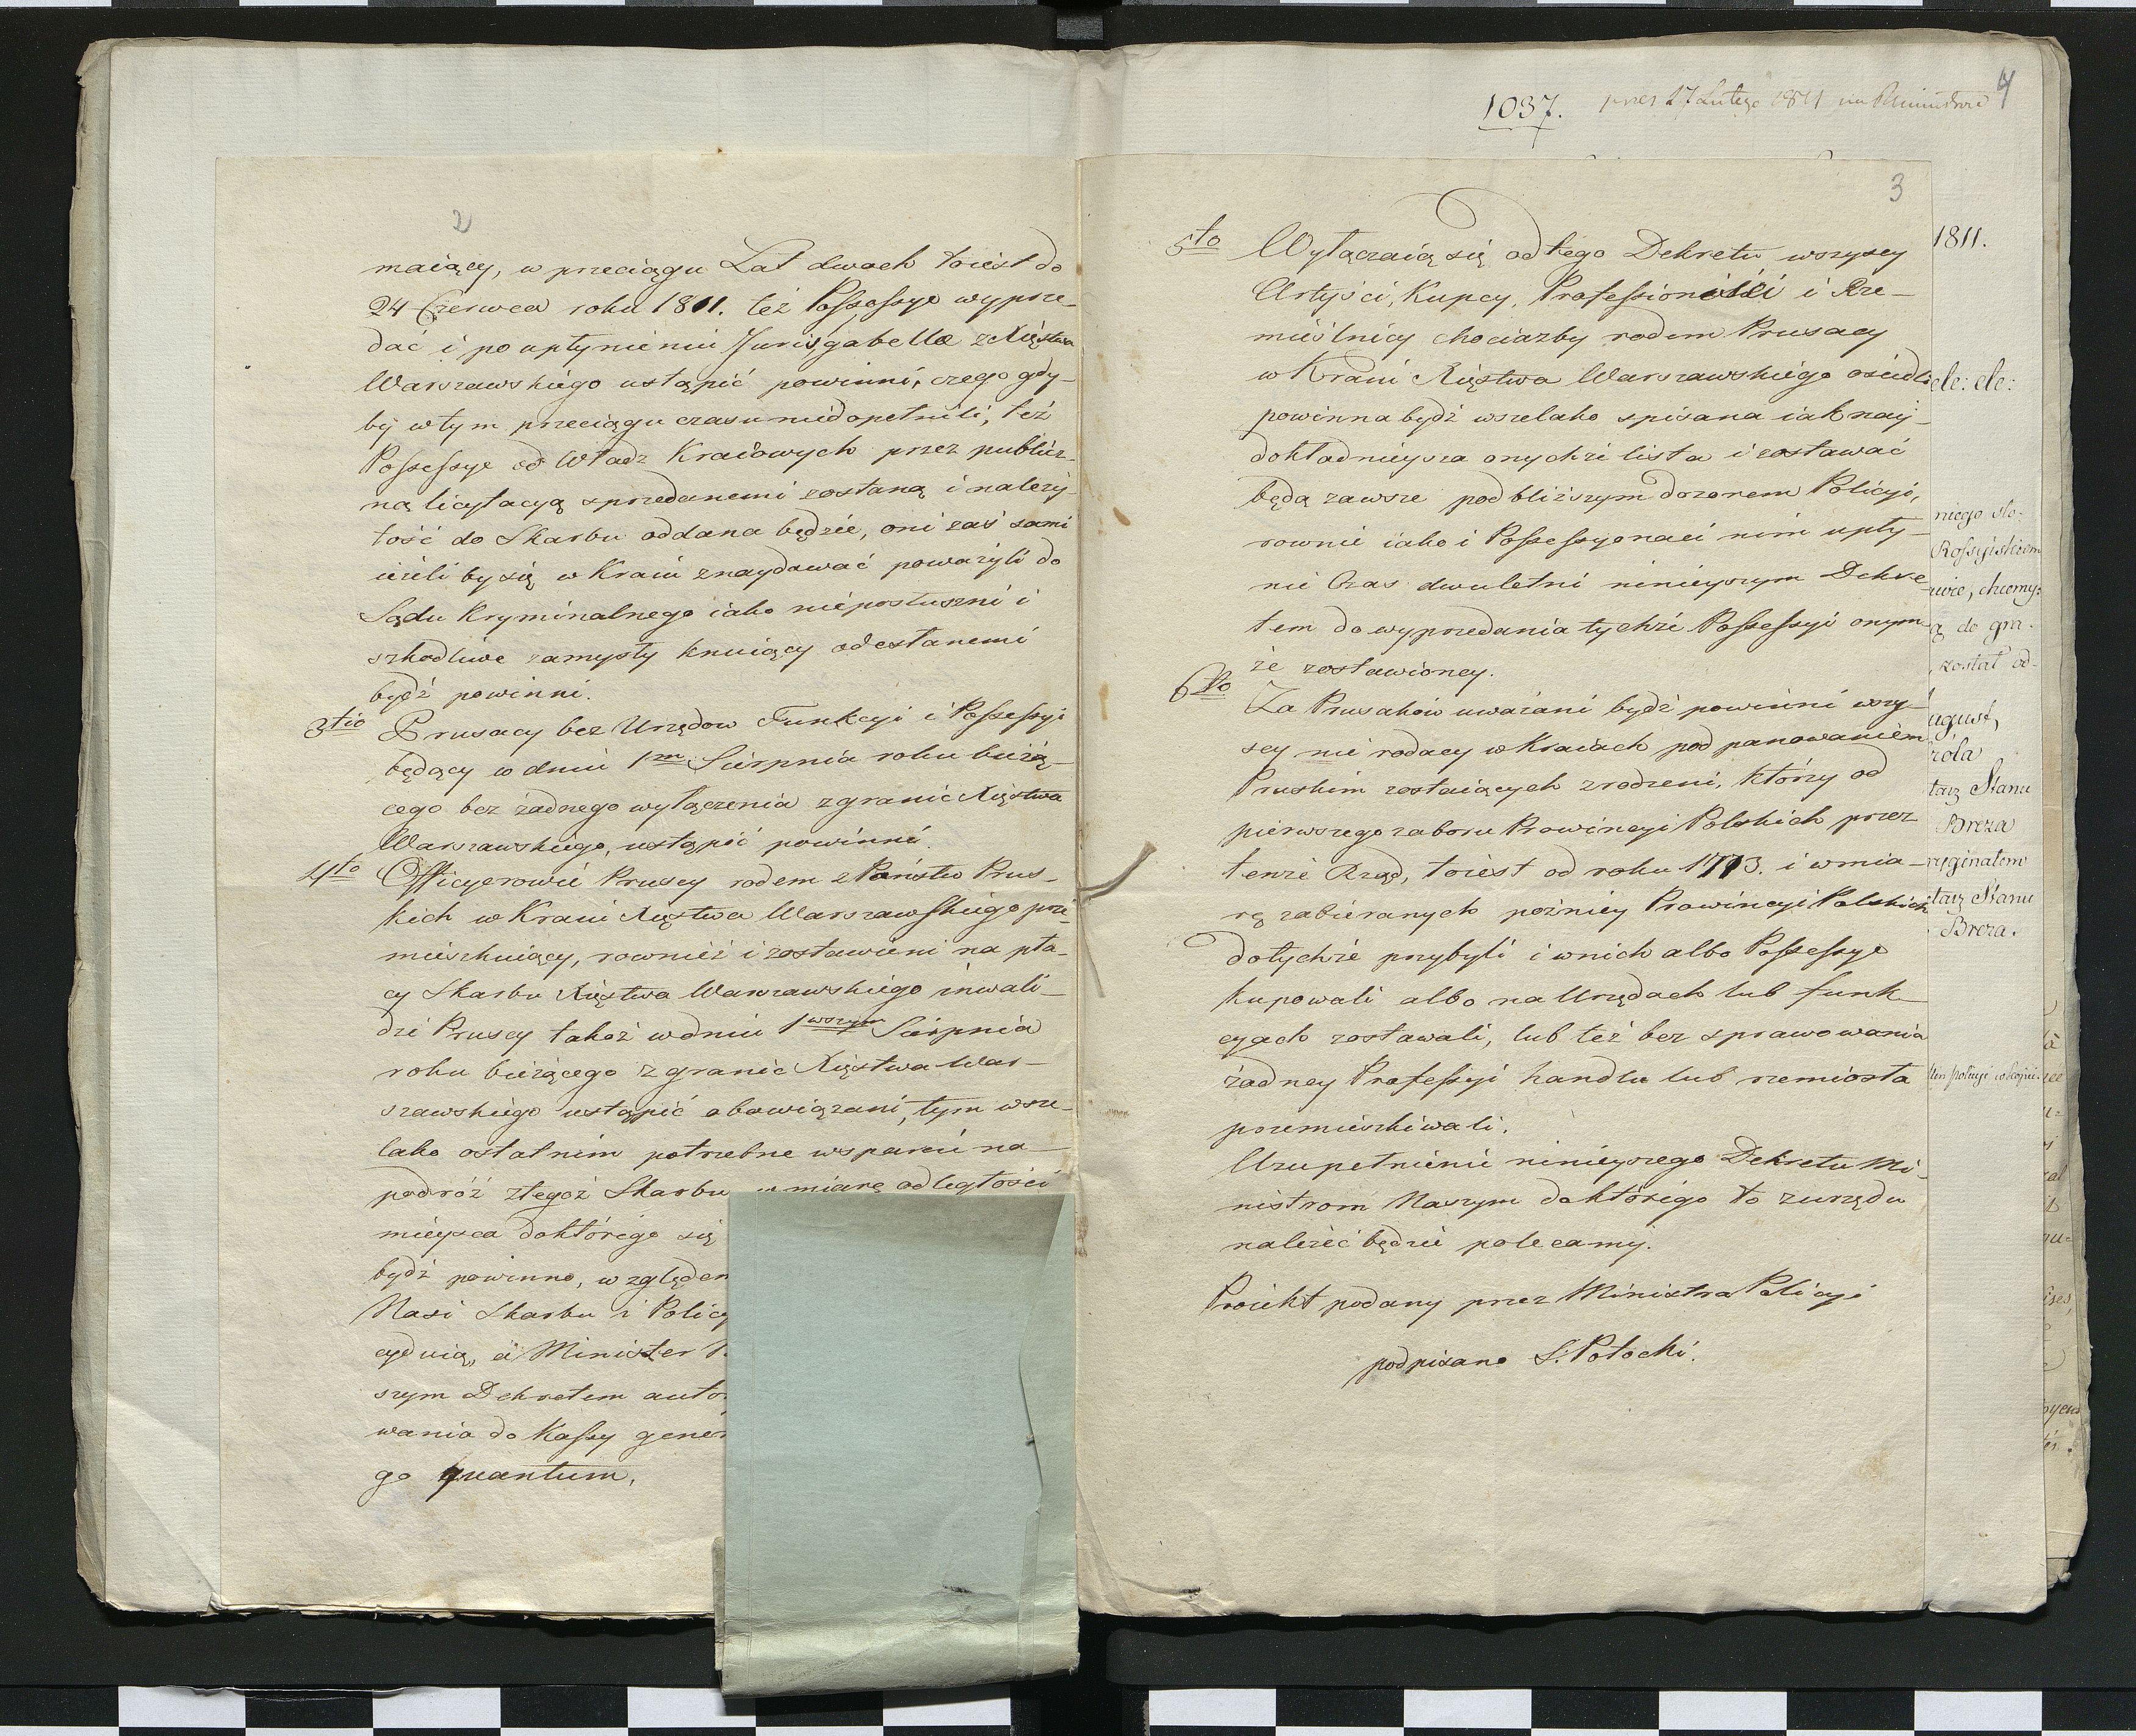 2
maiący, w przeciągu Lat dwoch toiest do
24 Czerwca roku 1811. też Possessye wyprze-
dać i po upłynieniu Juris gabellæ z Xięstwa
Warszawskiego ustąpić powinni, czego gdy-
by w tym przeciągu czasu niedopełnili, też
Possessye od Władz Kraiowych przez publicz-
ną licytacyą sprzedanemi zostaną i należy-
tość do Skarbu oddana będzie, oni zaś sami
ieżeli by się w Kraiu znaydować poważyli do
Sądu Kryminalnego iako nieposłuszni i
szkodliwe zamysły knuiący odesłanemi
bydź powinni.
3tio Prusacy bez Urzędow Funkcyi i Possessyi
będący w dniu 1m Sierpnia roku bieżą-
cego bez żadnego wyłączenia z granic Xięstwa
Warszawskiego, ustąpić powinni.
4to Officyerowie Pruscy rodem z Państw Prus-
kich w Kraiu Xięstwa Warszawskiego prze-
mieszkuiący, rownież i zostawieni na pła-
cy Skarbu Xięstwa Warszawskiego inwali-
dzi Pruscy takoż w dniu 1wszym Sierpnia
roku bieżącego z granic Xięstwa War-
szawskiego ustąpić obowiązani, tym wsze-
lako ostatnim potrzebne wsparcie na
podróż z tegoż Skarbu w miarę odległości
mieysca do którego się
bydź powinno, względem
Nasi Skarbu i Policy
cyduią, a Minister
szym Dekretem auto
wania do Kassy gener
go quantum,
1037. prez 27 Lutego 1811 4
3
5to Wyłączaią się od tego Dekretu wszyscy
Artyści, Kupcy, Professioniści i Rze-
mieślnicy chociażby rodem Prusacy
w Kraiu Xięstwa Warszawskiego osiedli
powinna bydź wszelako spisana iak nay-
dokładnieysza onychże lista i zostawać
będą zawsze pod bliższym dozorem Policyi,
rownie iako i Possessyonaci nim upły-
nie Czas dwuletni ninieyszym Dekre-
tem do wyprzedania tychże Possessyi onym-
że zostawioney.
6to Za Prusaków uważani bydź powinni wszy-
scy nie rodacy w Kraiach pod panowaniem
Pruskim zostaiących zrodzeni, którzy od
pierwszego zaboru Prowincyi Polskich przez
tenże Rząd, toiest od roku 1773. i w mia-
rę zabieranych poźniey Prowincyi Polskich
do tychże przybyli i w nich albo Possessye
kupowali albo na Urzędach lub funk-
cyach zostawali, lub też bez sprawowania
żadney Professyi handlu lub rzemiosła
przemieszkiwali.
Uzupełnienie ninieyszego Dekretu Mi-
nistrom Naszym do którego to z urzędu
należeć będzie polecamy.
Proiekt podany przez Ministra Policyi
podpisano S. Potocki.
1811.
etc: etc:
niego sto-
Rossyiskiem
chcemy:
ą do gra-
został od-
ugust,
róla
tarz Stanu
Breza
ryginałem
tarz Stanu
Breza.